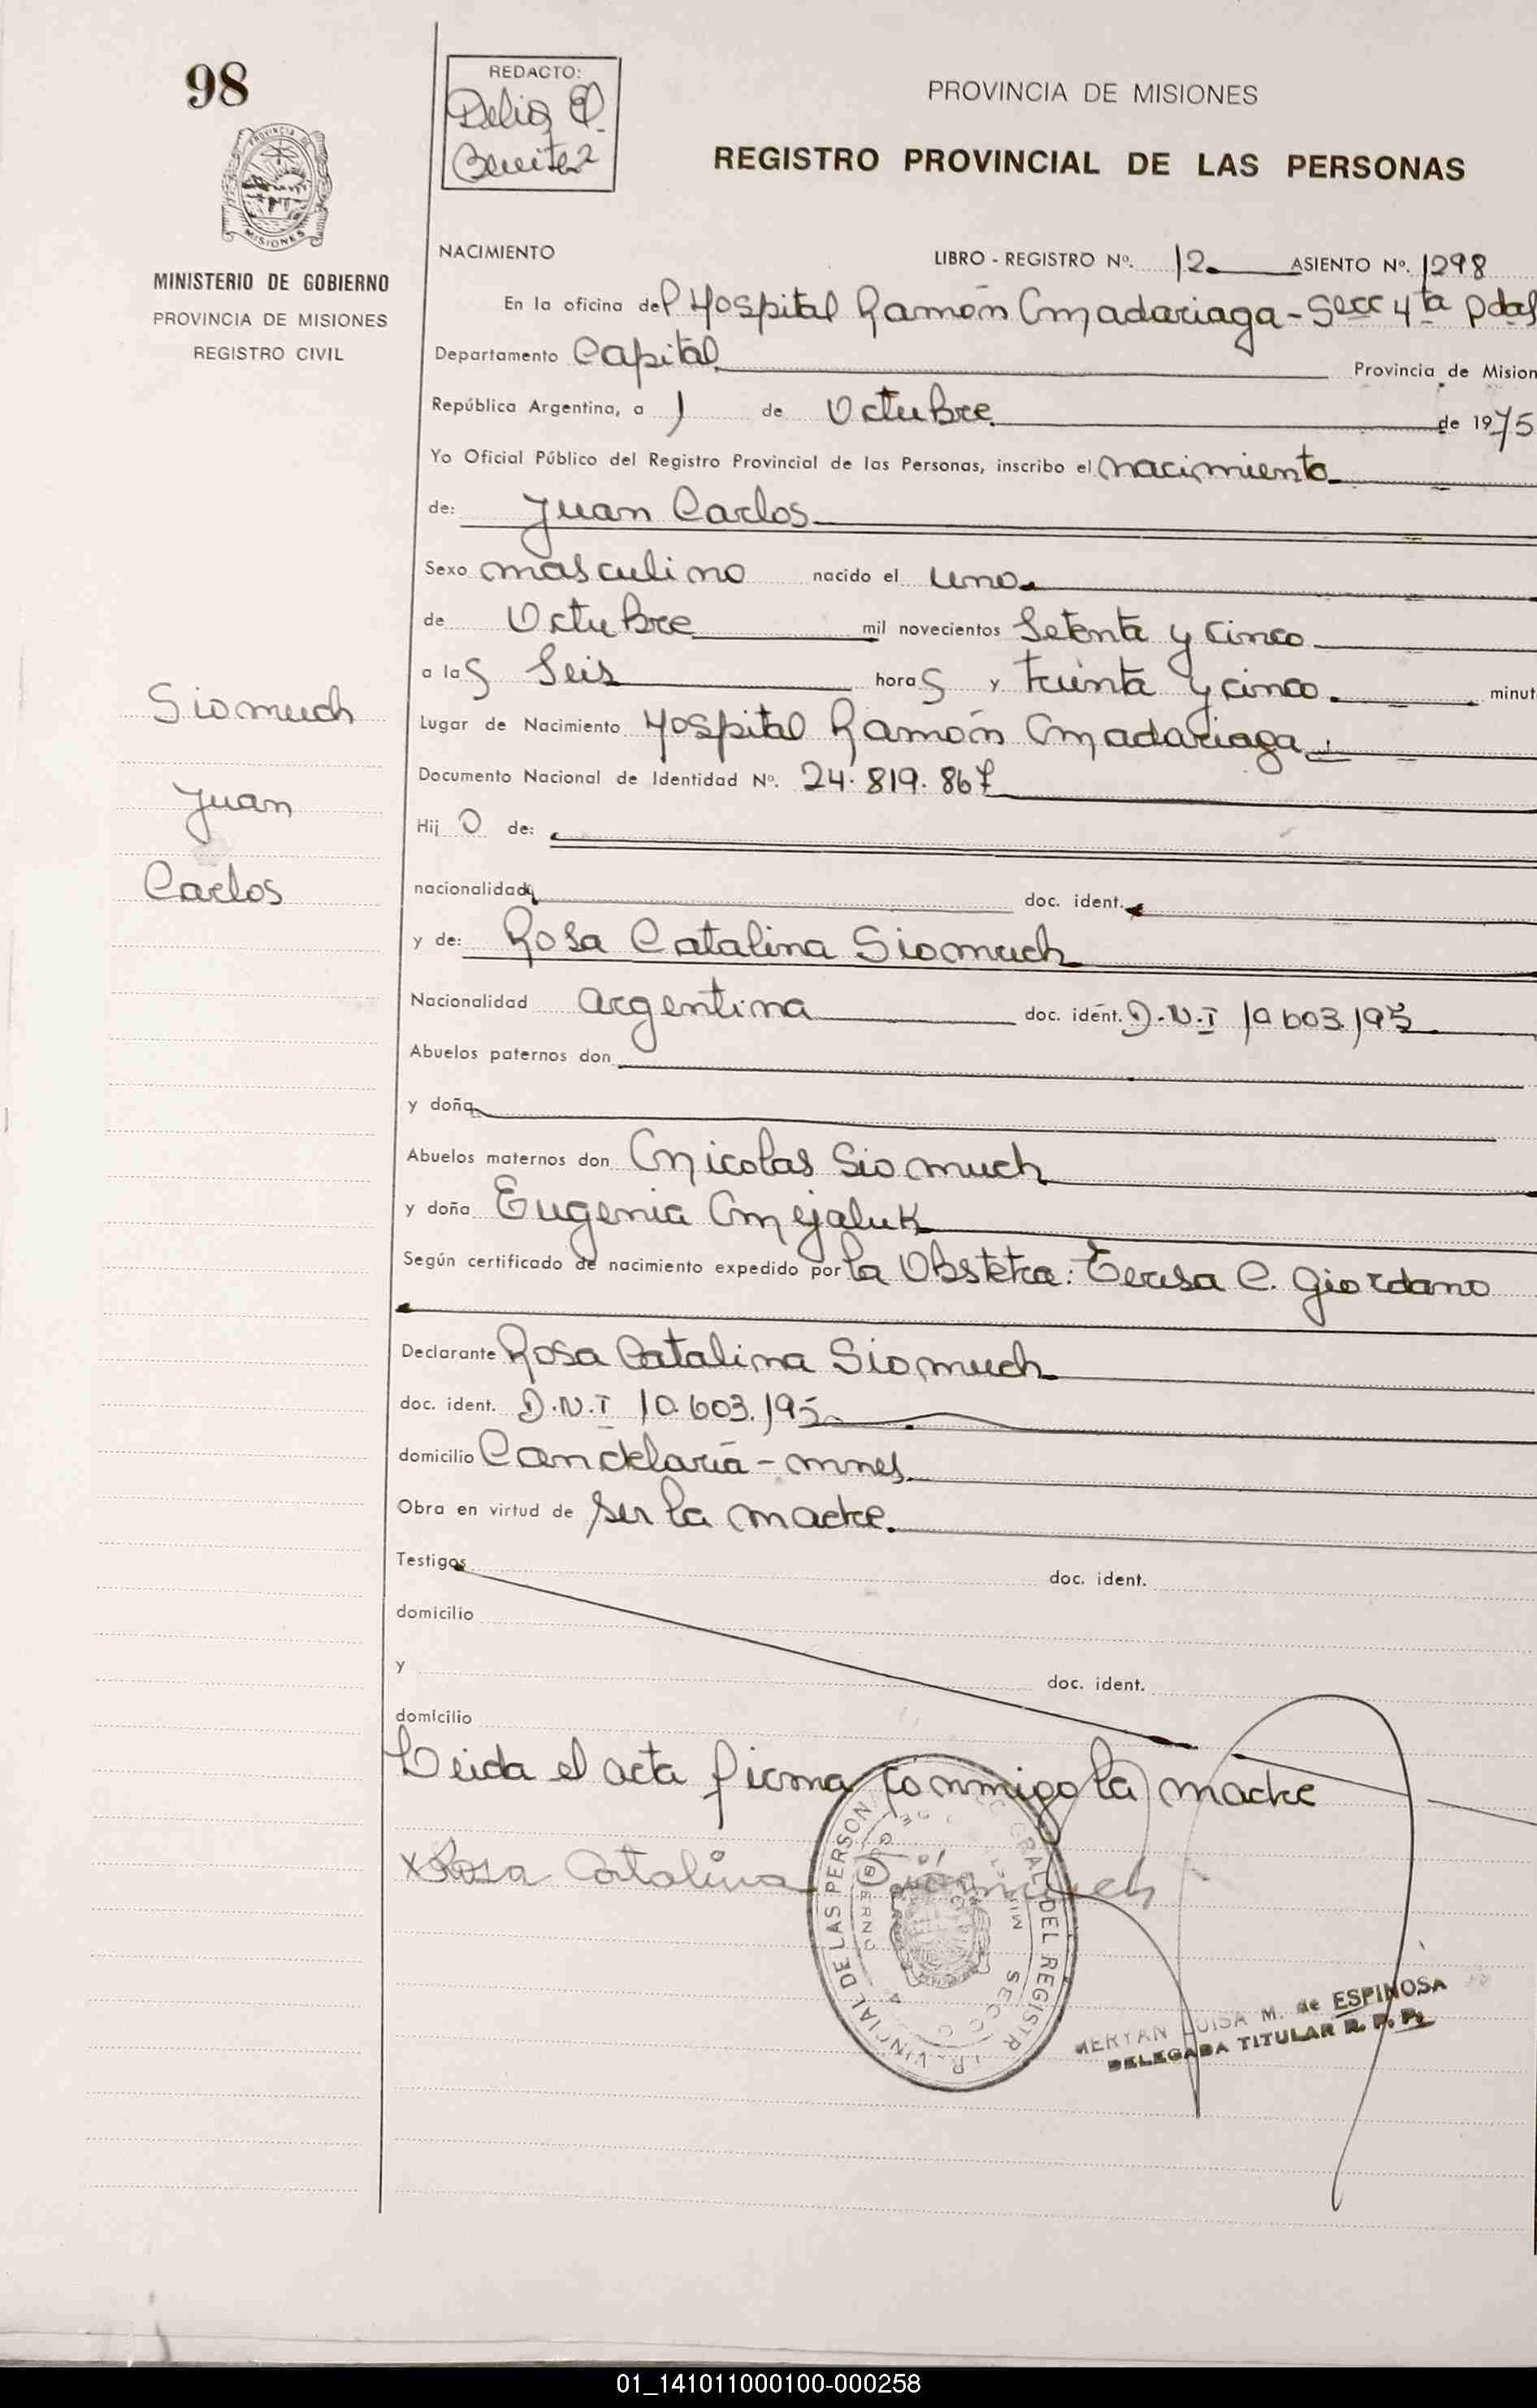 98
REDACTO:
Delia E.
Benitez
PROVINCIA DE MISIONES
REGISTRO PROVINCIAL DE LAS PERSONAS
MISIONES
MINISTERIO DE GOBIERNO
PROVINCIA DE MISIONES
REGISTRO CIVIL
NACIMIENTO LIBRO - REGISTRO Nº. 12 ASIENTO Nº. 1298
En la oficina del Hospital Ramón Madariaga - Secc 4ta Pdas
Departamento Capital Provincia de Mision
República Argentina, a 1 de Octubre de 1975
Yo Oficial Público del Registro Provincial de las Personas, inscribo el nacimiento
de: Juan Carlos
Sexo masculino nacido el uno
de Octubre mil novecientos Setenta y cinco
a las Seis horas y treinta y cinco minut
Lugar de Nacimiento Hospital Ramón Madariaga
Documento Nacional de Identidad Nº. 24.819.867
Hijo de:
nacionalidad doc. ident.
y de: Rosa Catalina Siomuch
Nacionalidad argentina doc. ident. D.N.I 10.603.195
Abuelos paternos don
y doña
Abuelos maternos don Nicolas Siomuch
y doña Eugenia Mejaluk
Según certificado de nacimiento expedido por la Obstetra: Teresa C. Giordano
Declarante Rosa Catalina Siomuch
doc. ident. D.N.I 10.603.195
domicilio Candelaria - mnes
Obra en virtud de ser la madre.
Testigos doc. ident.
domicilio
y doc. ident.
domicilio
Leida el acta firma conmigo la madre
x Rosa Catalina Siomuch
Siomuch
Juan
Carlos
LUISA M. de ESPINOSA
DELEGADA TITULAR R. P. P.
01_141011000100-000258